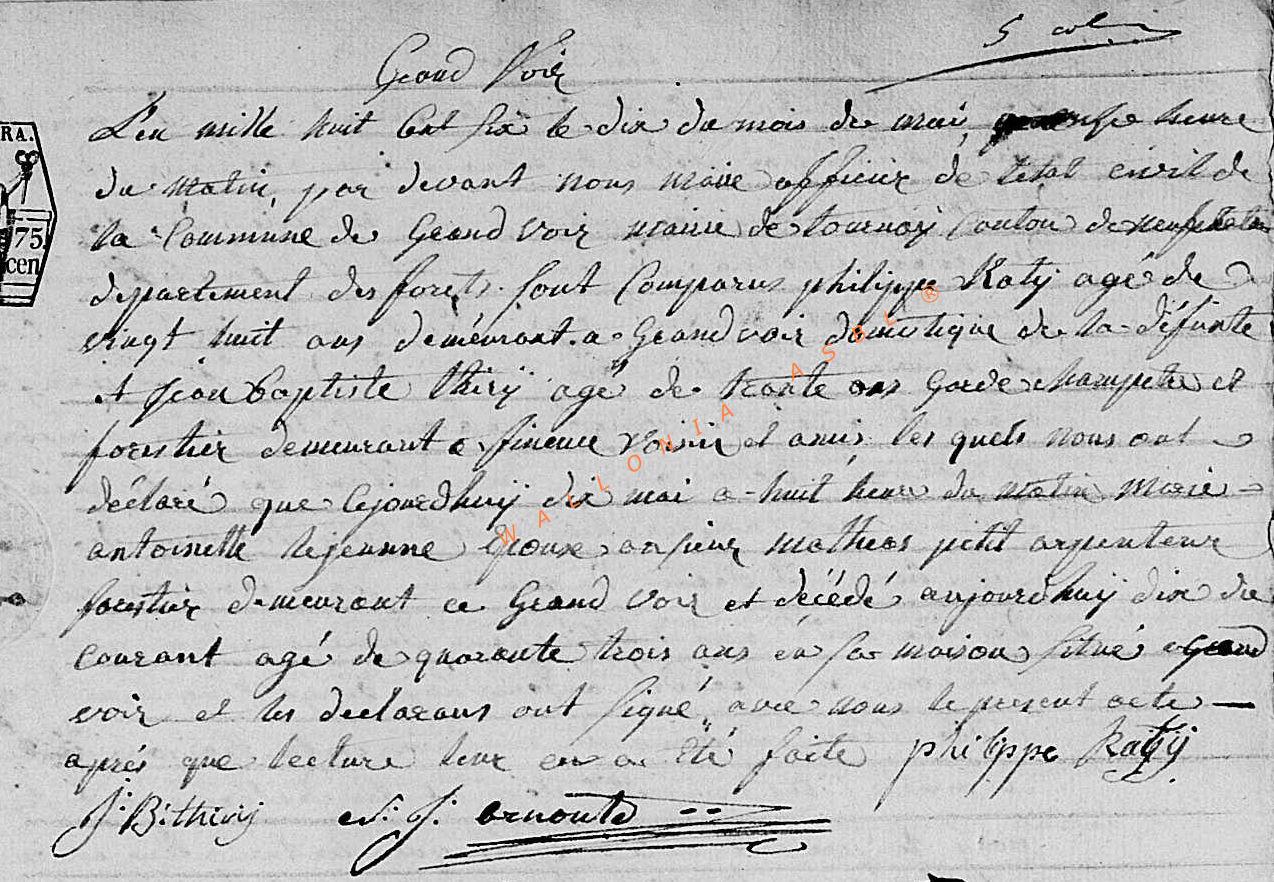 5 col
Grand Voir
RA.
75
cen
L'an mille huit Cent six le dix du mois de mai, onse heure
du matin, par devant nous maire officier de letat civil de
la Commune de Grand voir mairie de tournay Canton de neufchateau
departement des forets. sont Comparus philippe Katÿ agé de
vingt huit ans demeurant a Grandvoir domestique de la défunte
et jean baptiste thirÿ agé de trante ans Garde champetre et
forestier demeurant a voisin et amis les quels nous ont
déclaré que Cejourdhuÿ dix mai a huit heure du matin Marie
antoinette lejeunne Epouse au sieur Mathias petit arpenteur
forestier demeurant a Grand voir et décédé aujourdhuÿ dix du
courant agé de quarante trois ans én sa maison situé a Grand
voir et les declarans ont signé avec nous le present acte
aprés que lecture leur en a été faite philippe Katÿ
J: B: thirÿ J. arnould
WALLONIA ASBL ®